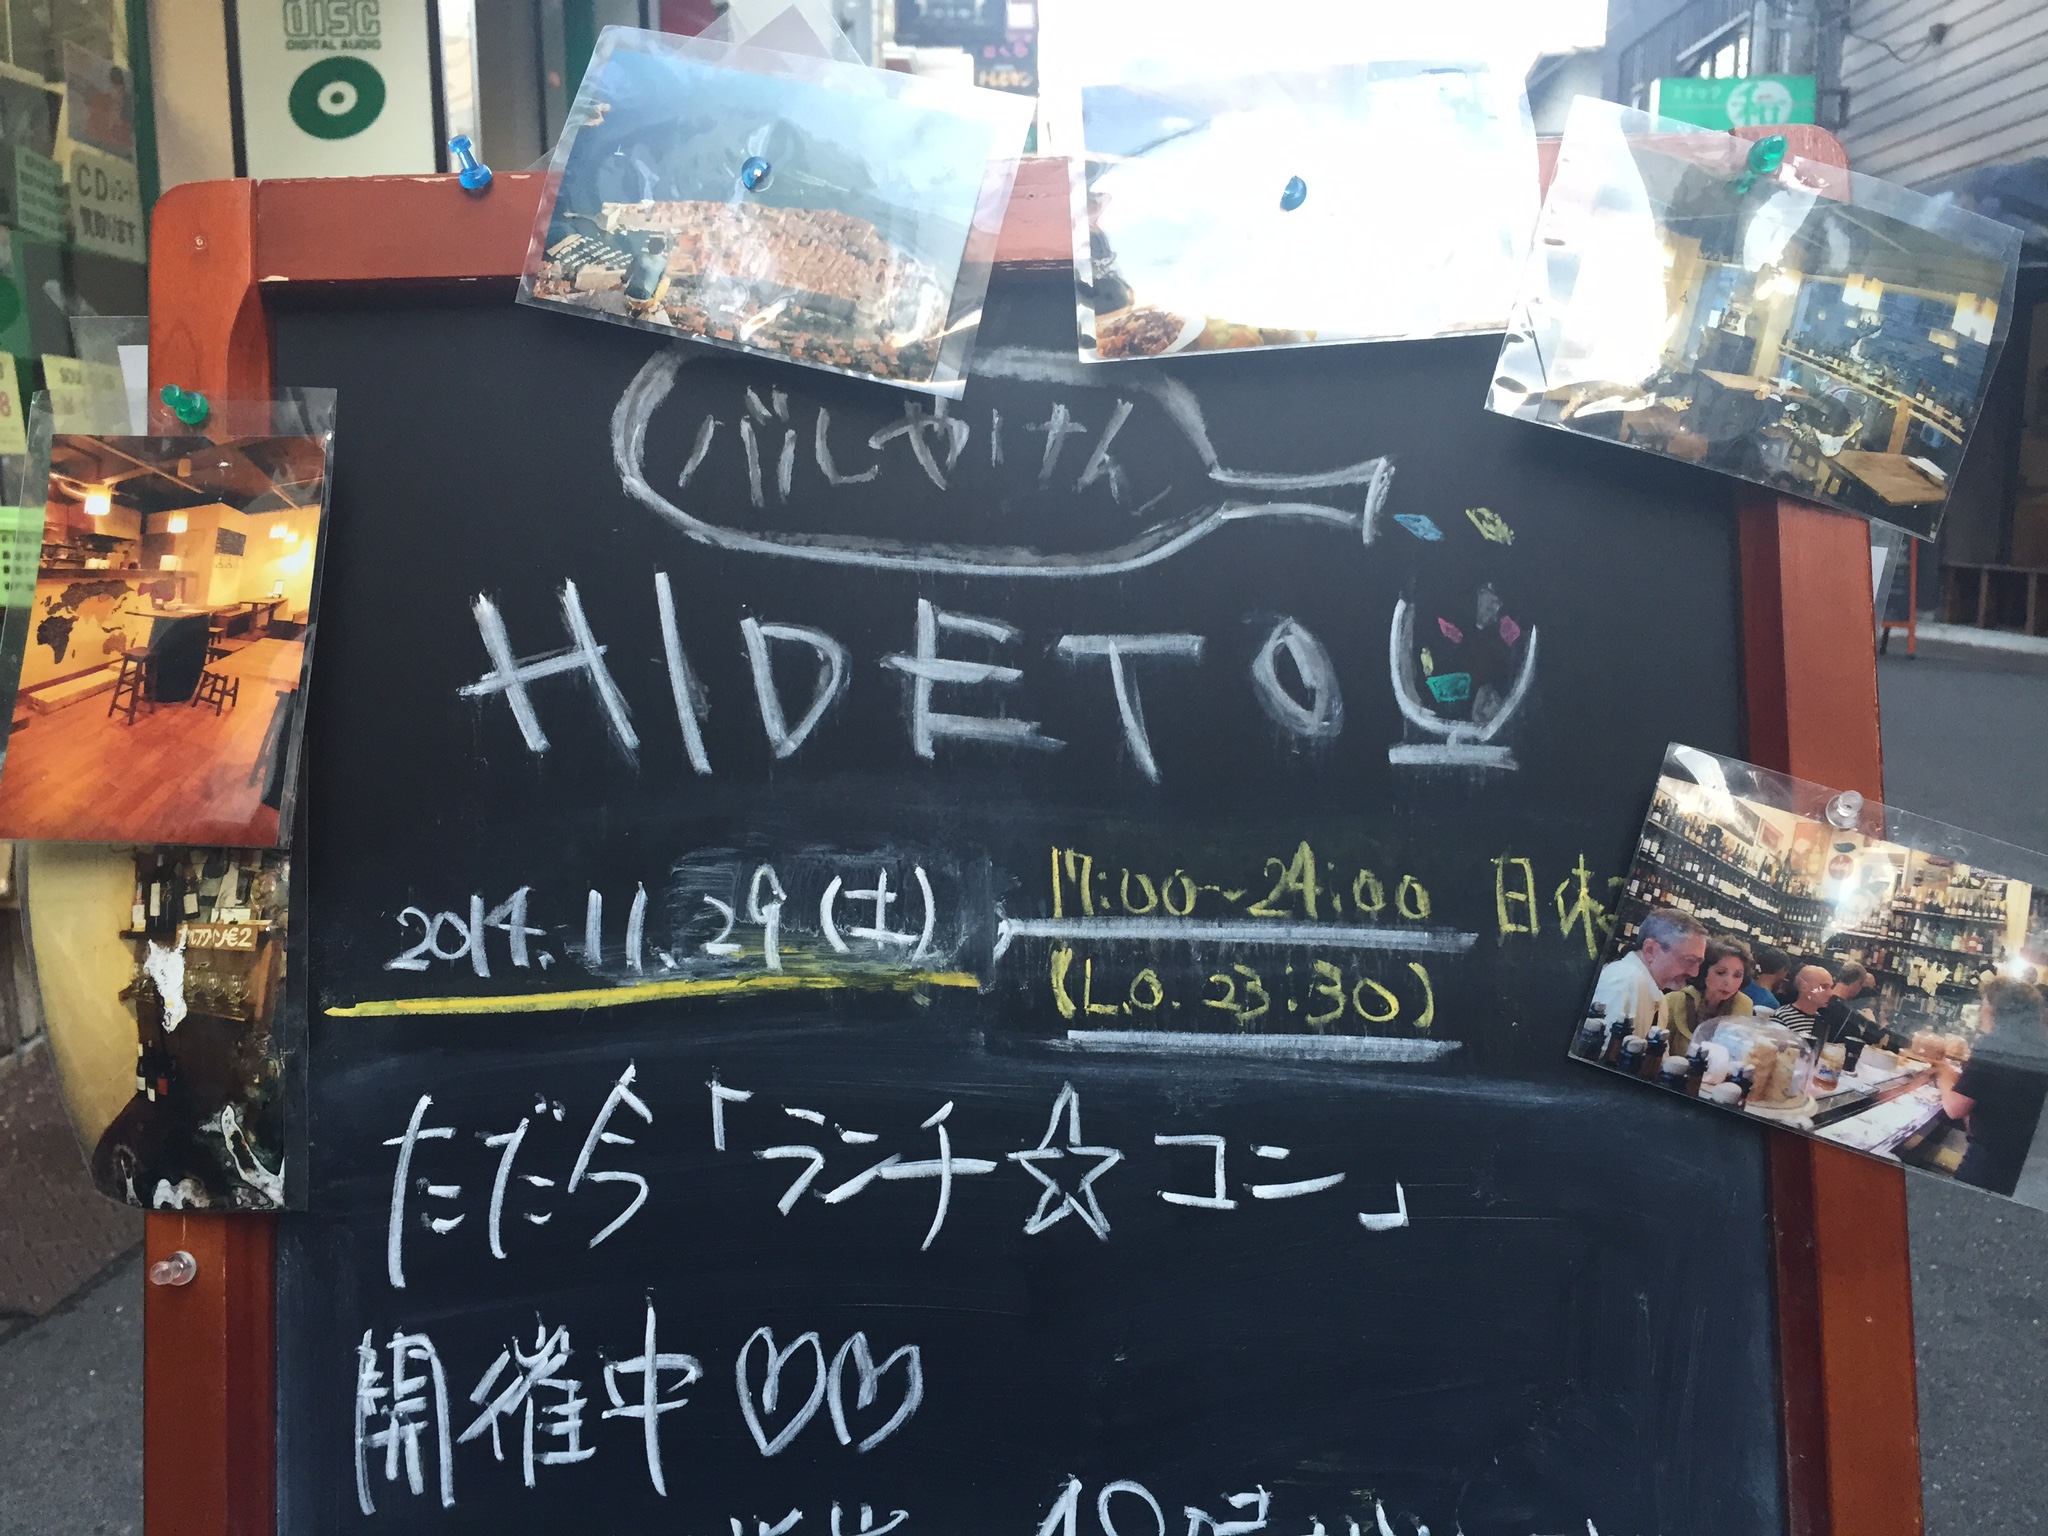 disc
DIGITAL AUDIO
CD
買取ります
バルしゃけん
HIDETO
2014.11.29(土)
17:00~24:00
日休
(L.O. 23:30)
ただ今「ランチ☆コン」
開催中♡♡